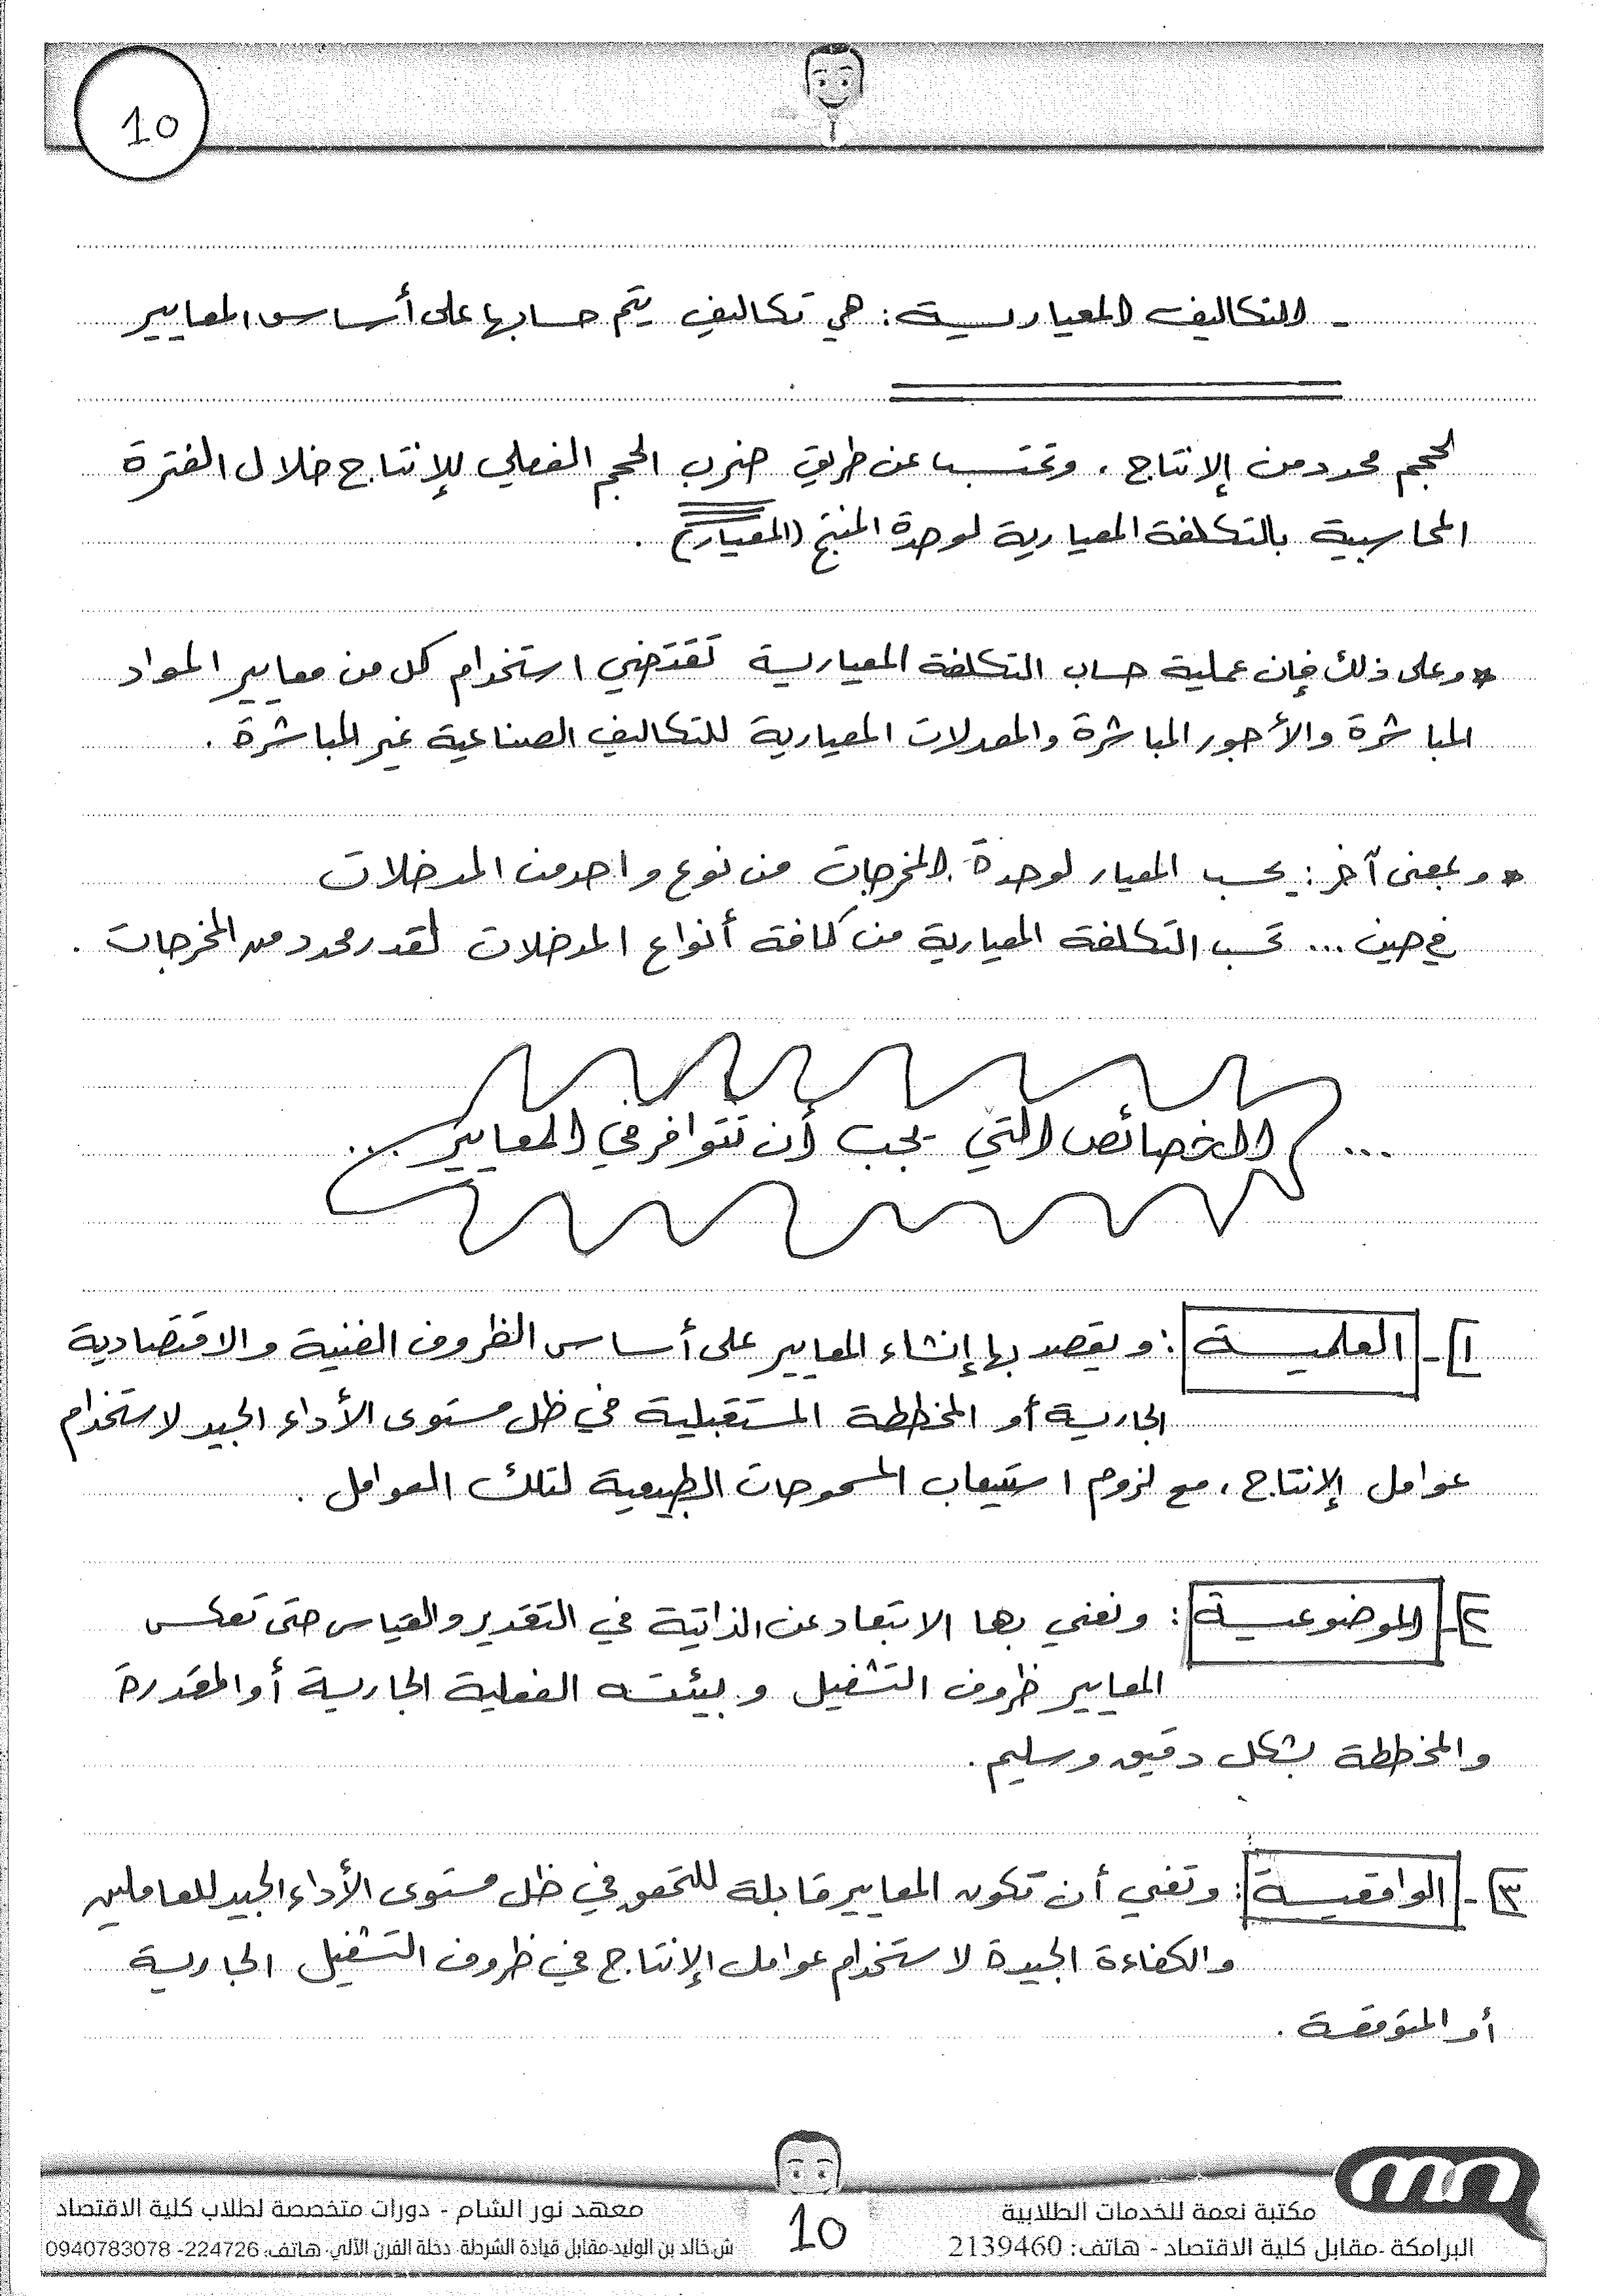 10
- التكاليف المعيارية: هي تكاليف يتم حسابها على أساس المعايير
لحجم محدد من الإنتاج، وتحتسب عن طريق ضرب الحجم الفعلي للإنتاج خلال الفترة
المحاسبية بالتكلفة المعيارية لوحدة المنتج (المعيار).
* وعلى ذلك فإن عملية حساب التكلفة المعيارية تقتضي استخدام كل من معايير المواد
المباشرة والأجور المباشرة والمعدلات المعيارية للتكاليف الصناعية غير المباشرة.
* وبمعنى آخر: يحسب المعيار لوحدة المخرجات من نوع واحد من المدخلات
في حين ... تحسب التكلفة المعيارية من كافة أنواع المدخلات لقدر محدد من المخرجات.
... الخصائص التي يجب أن تتوافر في المعايير ...
١- العلمية: ويقصد بها إنشاء المعايير على أساس الظروف الفنية والاقتصادية
الجارية أو المخططة المستقبلية في ظل مستوى الأداء الجيد لاستخدام
عوامل الإنتاج، مع لزوم استيعاب المسموحات الطبيعية لتلك العوامل.
٢- الموضوعية: ونعني بها الابتعاد عن الذاتية في التقدير والقياس حتى تعكس
المعايير ظروف التشغيل وبيئته الفعلية الجارية أو المقدرة
والمخططة بشكل دقيق وسليم.
٣- الواقعية: وتعني أن تكون المعايير قابلة للتحقق في ظل مستوى الأداء الجيد للعاملين
والكفاءة الجيدة لاستخدام عوامل الإنتاج في ظروف التشغيل الجارية
أو المتوقعة.
مكتبة نعمة للخدمات الطلابية
البرامكة - مقابل كلية الاقتصاد - هاتف: 2139460
10
معهد نور الشام - دورات متخصصة لطلاب كلية الاقتصاد
ش خالد بن الوليد - مقابل قيادة الشرطة - دخلة الفرن الآلي - هاتف: 224726 - 0940783078